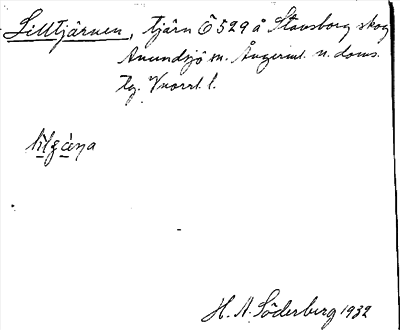 Lilltjärnen, tjärn Ö 529 å Stavsborg skog
Anundsjö sn. Ångerml. n. doms.
lg. Vnorrl. l.
H. A. Söderberg 1932